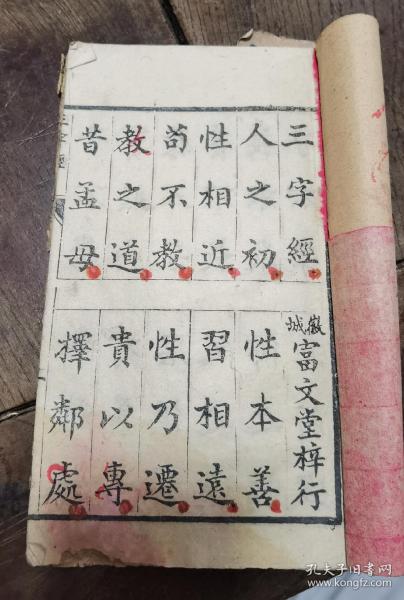 三字經
徽城富文堂梓行
人之初
性本善
性相近
習相遠
苟不教
性乃遷
教之道
貴以專
昔孟母
擇鄰處
三字經
孔夫子旧书网
www.kongfz.com